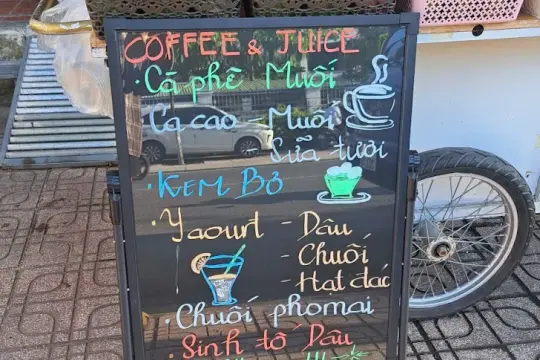 COFFEE & JUICE
· Cà phê Muối
Ca cao - Muối
Sữa tươi
· KEM BƠ
· Yaourt - Dâu
- Chuối
- Hạt đác
· Chuối phomai
· Sinh tố Dâu